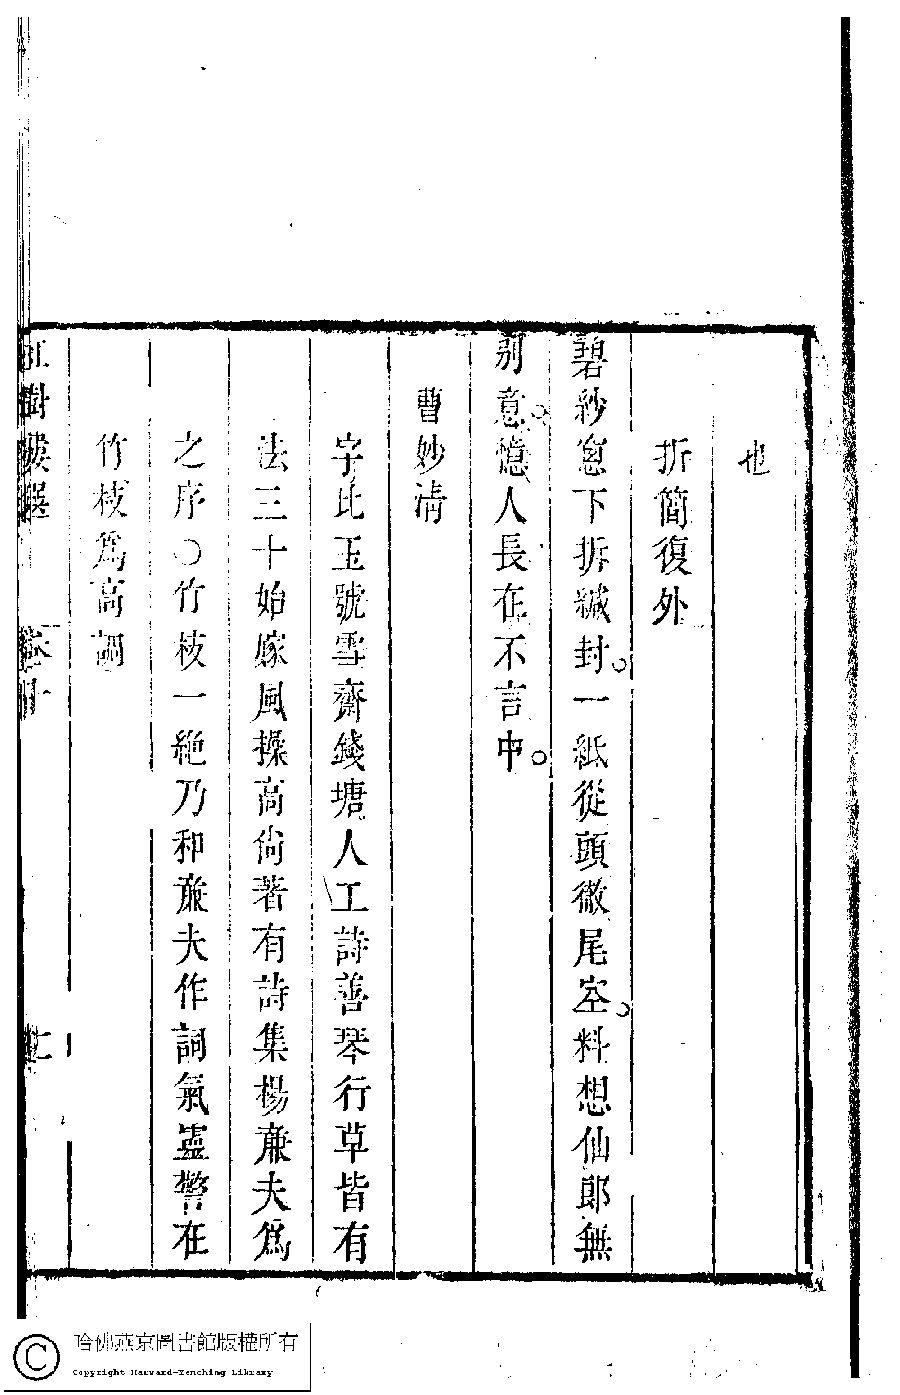 也
折簡復外
碧紗窓下拆緘封一紙從頭徹尾空料想仙郎無
別意憶人長在不言中
曹妙清
字比玉號雪齋錢塘人工詩善琴行草皆有
法三十始嫁風操高尚著有詩集楊亷夫爲
之序〇竹枝一絶乃和亷夫作詞氣靈警在
竹枝爲高調
紅樹樓選 卷十
哈佛燕京圖書館版權所有
Copyright Harvard-Yenching Library